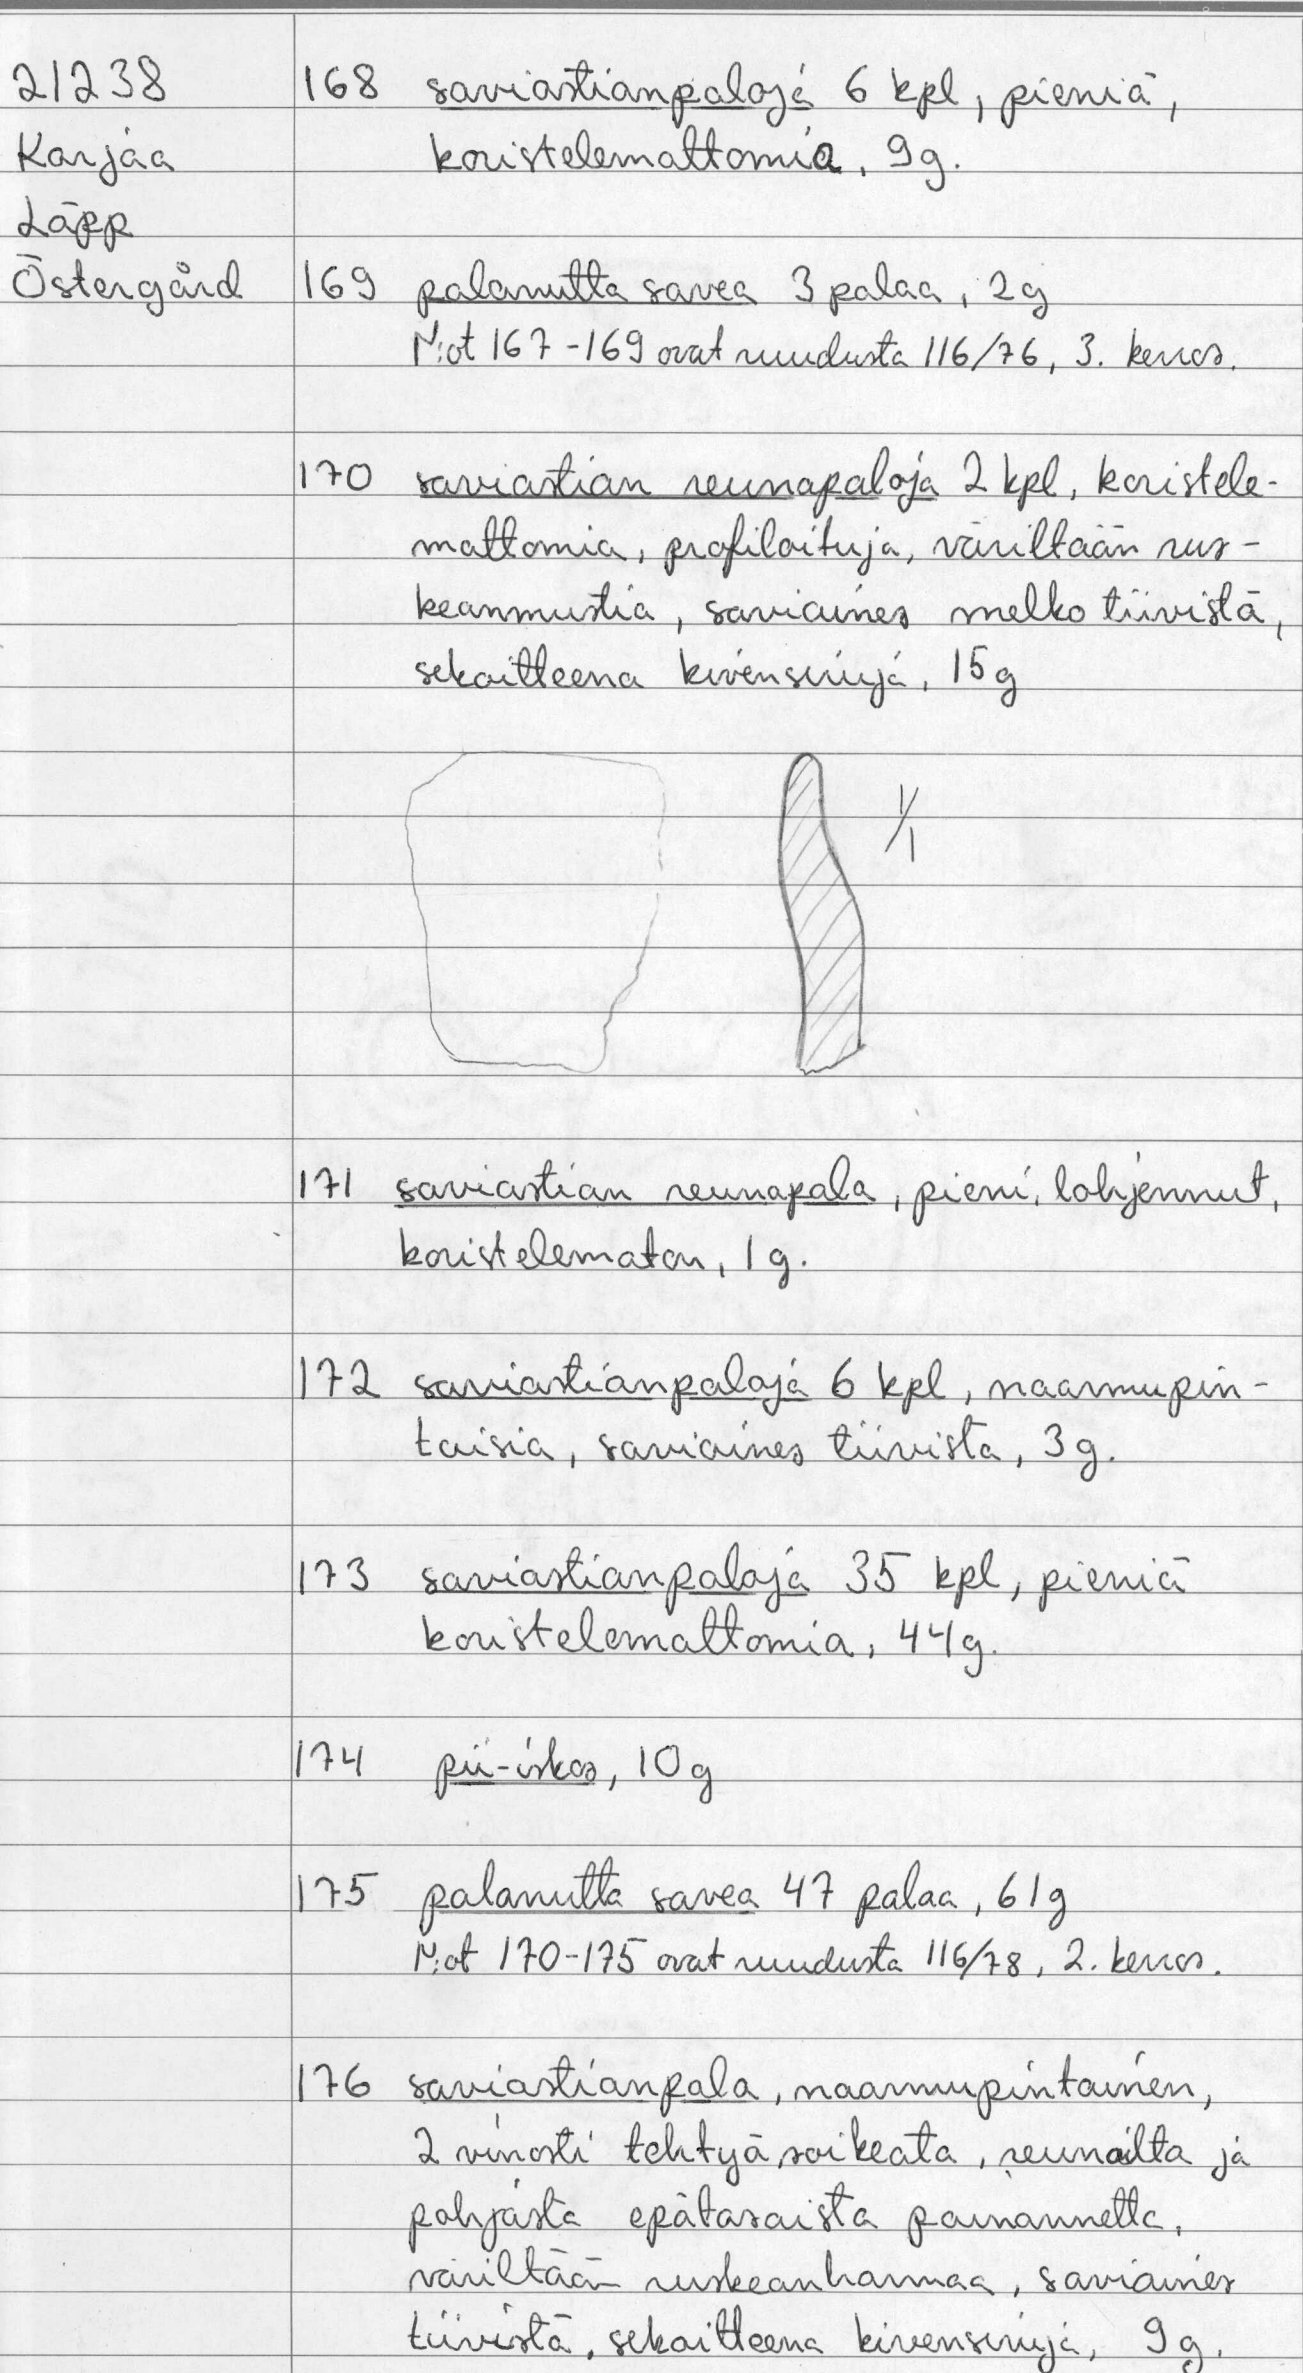 21238
Karjaa
Läpp
Östergård
168 saviastianpaloja 6 kpl, pieniä,
koristelemattomia, 9g.
169 palanutta savea 3 palaa, 2g
N:ot 167-169 ovat ruudusta 116/76, 3. kerros.
170 saviastian reunapaloja 2 kpl, koristele-
mattomia, profiloituja, väriltään rus-
keanmustia, saviaines melko tiivistä,
sekoitteena kivensiruja, 15g
1/1
171 saviastian reunapala, pieni, lohjennut,
koristelematon, 1g.
172 saviastianpaloja 6 kpl, naarmupin-
taisia, saviaines tiivistä, 3g.
173 saviastianpaloja 35 kpl, pieniä
koristelemattomia, 44g.
174 pii-iskos, 10g
175 palanutta savea 47 palaa, 61g
N:ot 170-175 ovat ruudusta 116/78, 2. kerros.
176 saviastianpala, naarmupintainen,
2 vinosti tehtyä, soikeata, reunoilta ja
pohjasta epätasaista painannetta,
väriltään ruskeanharmaa, saviaines
tiivistä, sekoitteena kivensiruja, 9g.